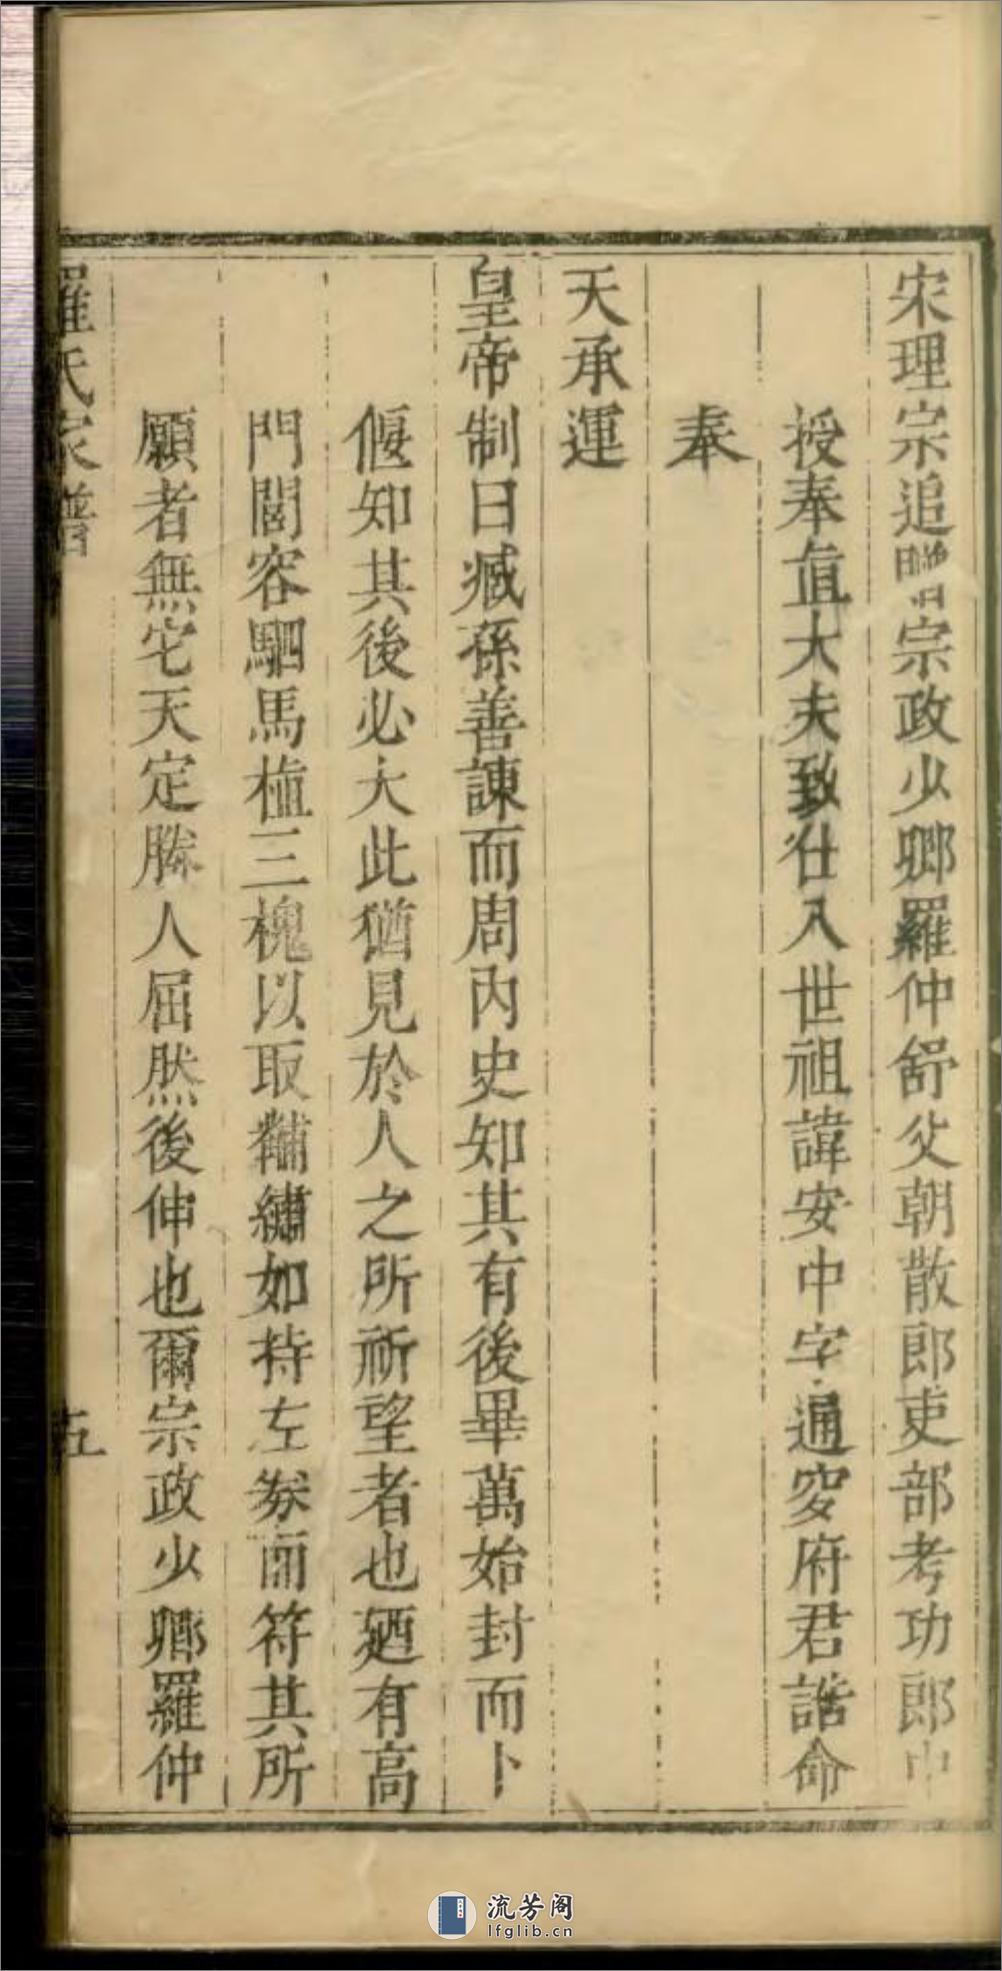 宋理宗追贈宗政少卿羅仲舒父朝散郎吏部考功郎中
授奉直大夫致仕入世祖諱安中字通変府君誥命
奉
天承運
皇帝制曰臧孫善諫而周內史知其有後畢萬始封而卜
偃知其後必大此猶見於人之所祈望者也廼有高
門閭容駟馬植三槐以取黼繡如持左券而符其所
願者無它天定勝人屈然後伸也爾宗政少卿羅仲
羅氏家譜
五
流芳阁
lfglib.cn